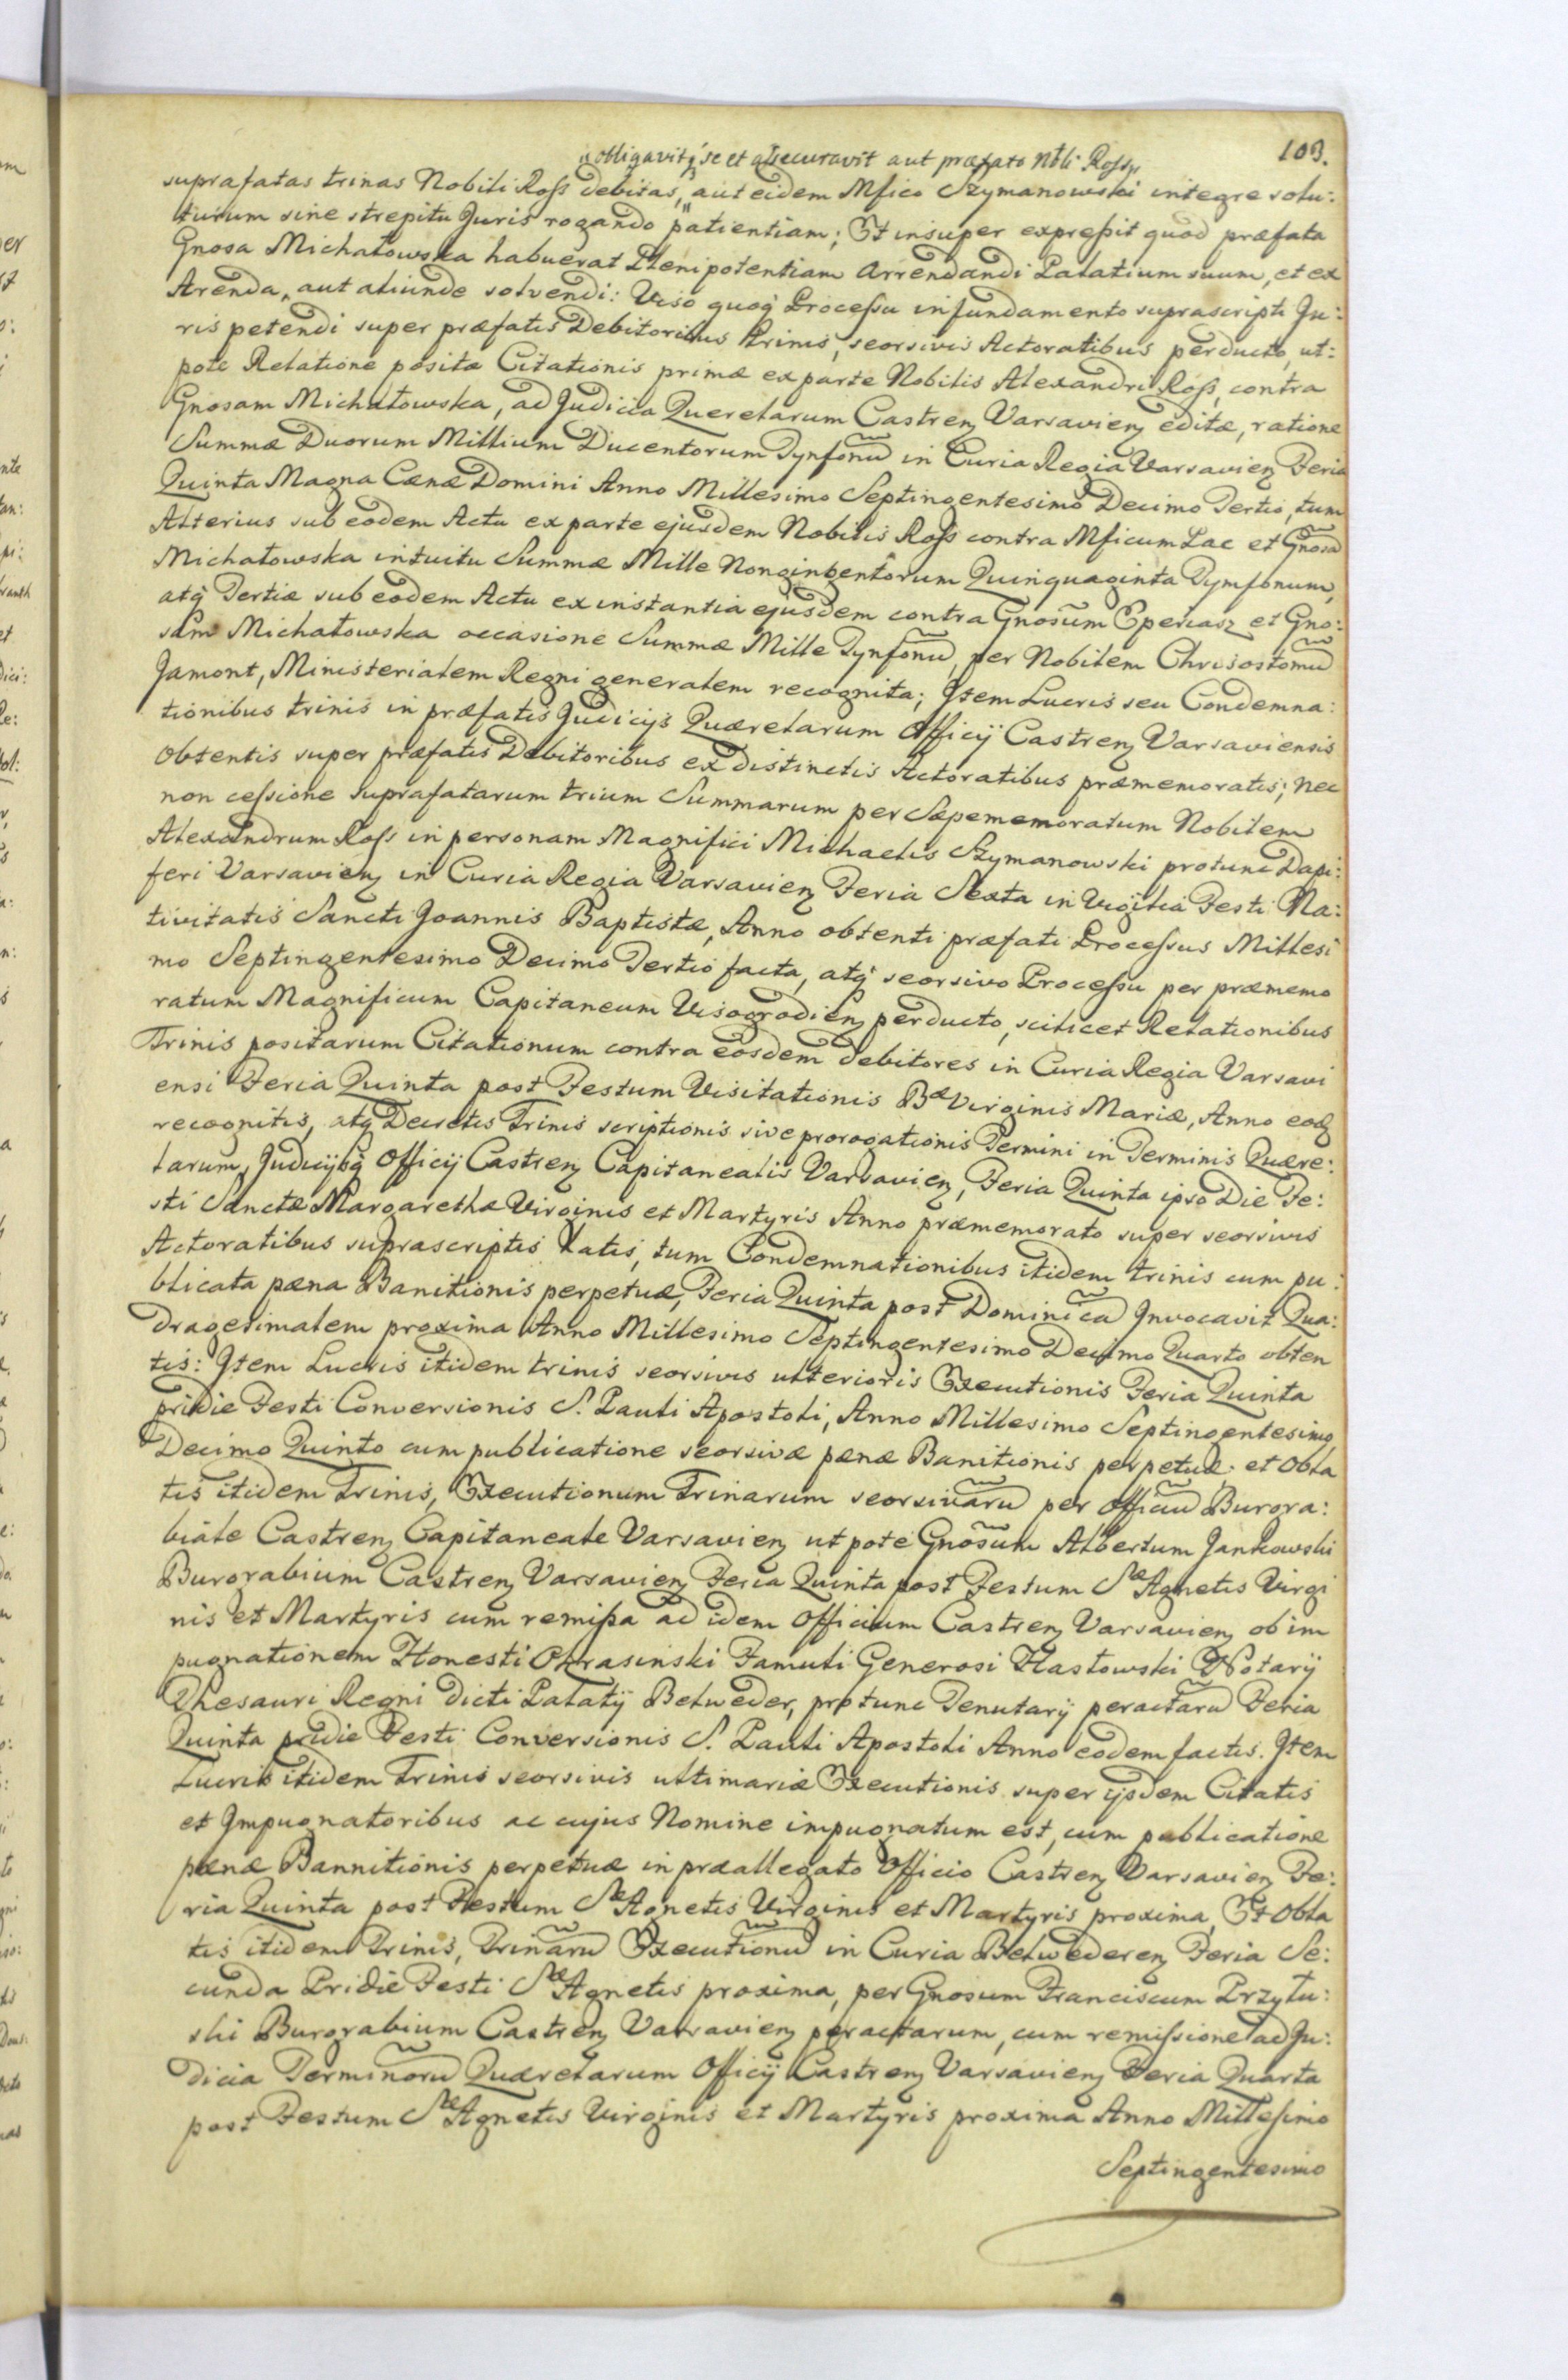 103.
"obligavitq́ se et assecuravit aut præfato Nbli Ross"
suprafatas trinas Nobili Ross debitas, aut eidem Mfico Szymanowski integre solu:
turum sine strepitu Juris rogando patientiam; Et insuper expressit quod præfata
Gnosa Michałowska habuerat Plenipotentiam Arrendandi Palatium suum, et ex
Arenda, aut aliunde solvendi: Viso quoq́ Processu in fundamento suprascripti Ju:
ris petendi super præfatis Debitoribus trinis, seorsivis Actoratibus perducto, ut:
pote Relatione positæ Citationis primæ ex parte Nobilis Alexandri Ross, contra
Gnosam Michałowska, ad Judicia Querelarum Castren Varsavien editæ, ratione
Summæ Duorum Millium Ducentorum Tynfonũ in Curia Regia Varsavien Feria
Quinta Magna Cænæ Domini Anno Millesimo Septingentesimo Decimo Tertio, tum
Alterius sub eodem Actu ex parte ejusdem Nobilis Ross contra Mficum Lac et Gnosã
Michałowska intuitu Summæ Mille Nonginbentorum Quinquaginta Tymfonum,
atq́ Tertiæ sub eodem Actu ex instantia ejusdem contra Gnosum Eperiasz et Gno:
sam Michałowska occasione Summæ Mille Tynfonũ, per Nobilem Chrisostomũ
Jamont, Ministerialem Regni generalem recognita; Item Lucris seu Condemna:
tionibus trinis in præfatis Judicijs Quærelarum Officij Castren Varsaviensis
obtentis super præfatis Debitoribus ex distinctis Actoratibus præmemoratis; nec
non cessione suprafatarum trium Summarum per Sæpememoratum Nobilem
Alexandrum Ross in personam Magnifici Michaelis Szymanowski protunc Dapi:
feri Varsavien in Curia Regia Varsavien Feria Sexta in Vigilia Festi Na:
tivitatis Sancti Joannis Baptistæ, Anno obtenti præfati Processus Millesi
mo Septingentesimo Decimo Tertio facta, atq́ seorsivo Processu per præmemo
ratum Magnificum Capitaneum Visogrodien perducto, scilicet Relationibus
Trinis positarum Citationum contra eosdem debitores in Curia Regia Varsavi
ensi Feria Quinta post Festum Visitationis Bæ Virginis Mariæ, Anno eod
recognitis, atq́ Decretis Trinis scriptionis sive prorogationis Termini in Terminis Quære:
larum, Judicijsq́ Officij Castren Capitanealis Varsavien, Feria Quinta ipso Die Fe:
sti Sanctæ Margarethæ Virginis et Martyris Anno præmemorato super seorsivis
Actoratibus suprascriptis latis, tum Condemnationibus itidem trinis cum pu:
blicata pæna Banitionis perpetuæ, Feria Quinta post Dominicã Invocavit Qua:
dragesimalem proxima Anno Millesimo Septingentesimo Decimo Quarto obten
tis: Item Lucris itidem trinis seorsivis ulterioris Executionis Feria Quinta
pridie Festi Conversionis S. Pauli Apostoli, Anno Millesimo Septingentesimo
Decimo Quinto cum publicatione seorsivæ pænæ Banitionis perpetuæ et Obla
tis itidem Trinis, Executionum Trinarum seorsivarũ per Officiũ Burgra:
biale Castren Capitaneale Varsavien ut pote Gnosum Albertum Jankowski
Burgrabium Castren Varsavien Feria Quinta post Festum Sæ Agnetis Virgi
nis et Martyris cum remissa ad idem Officium Castren Varsavien ob im
pugnationem Honesti Okrasinski Famuli Generosi Hastowski Notarij
Thesauri Regni dicti Palatij Belweder, protunc Tenutarij peractarũ Feria
Quinta pridie Festi Conversionis S. Pauli Apostoli Anno eodem factis. Item
Lucris itidem Trinis seorsivis ultimariæ Executionis super ijsdem Citatis
et Impugnatoribus ac cujus Nomine impugnatum est, cum publicatione
pænæ Bannitionis perpetuæ in præallegato Officio Castren Varsavien Fe:
ria Quinta post Festum Sæ Agnetis Virginis et Martyris proxima, Et Obla
tis itidem Trinis, Trinarũ Executionũ in Curia Belwederen Feria Se:
cunda Pridie Festi Sæ Agnetis proxima, per Gnosum Franciscum Przytu:
ski Burgrabium Castren Varsavien peractarum, cum remissione ad Ju:
dicia Terminorũ Quærelarum Officij Castren Varsavien Feria Quarta
post Festum Sæ Agnetis Virginis et Martyris proxima Anno Millesimo
Septingentesimo